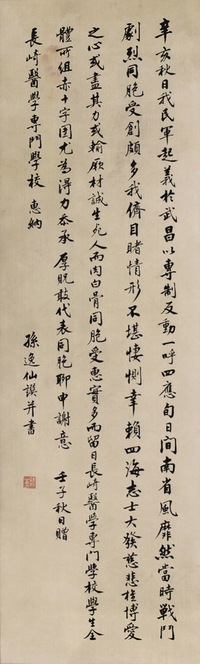 辛亥秋日我民軍起義於武昌以專制反動一呼四應旬日間南省風靡然當時戰鬥
劇烈同胞受創頗多我儕目睹情形不堪悽惻幸賴四海志士大發慈悲極博愛
之心或盡其力或輸厥材誠生死人而肉白骨同胞受惠實多而留日長崎醫學專門學校學生全
體所組赤十字團尤為得力忝承厚貺敢代表同胞聊申謝意 壬子秋日贈
長崎醫學專門學校 惠納
孫逸仙謨并書